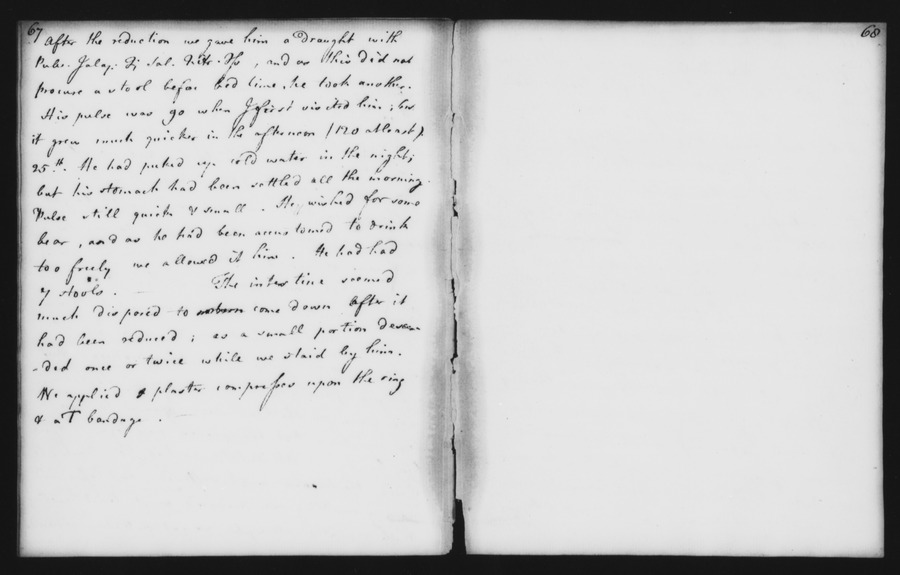 67
After the reduction we gave him a Draught with
Pulv. Jalap. Zj Sal. Nitr. ʒss, and as this did not
procure a stool before bed time, he took another.
His pulse was 90 when I first visited him; but
it grew much quicker in the afternoon (120 at least)
25th. He had puked up cold water in the night;
but his stomach had been settled all the morning.
Pulse still quick & small. He wished for some
bear, and as he had been accustomed to drink
too freely we allowed it him. He had had
7 stools. — The intestine seemed
much disposed to come down after it
had been reduced; as a small portion descen
-ded once or twice while we staid by him.
We applied plaster compresses upon the ring
& a T bandage.
68